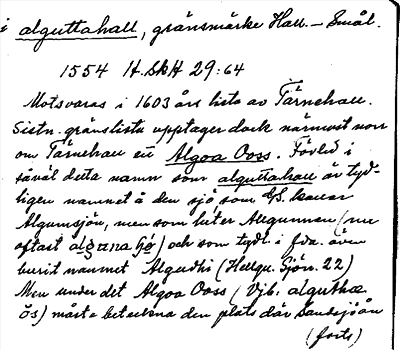 i alguttahall, gränsmärke Hall. – Smål.
1554 H. Sk H 29:64
Motsvaras i 1603 års lista av Tärnehall.
gränslista upptager dock närmast norr
om Tärnehall ett Algoa Ooss. Förled i
såväl detta namn som alguttahall är tyd-
ligen namnet å den sjö som GS. kallar
Algumsjön, men som heter Allgunnen (nu
oftast) och som tydl. i fda. även
burit namnet Algudhi (Hellqu. Sjön. 22)
Men under det Algoa Ooss (Vjb. algutha
ös) måste beteckna den plats där Sandsjöån
(forts)